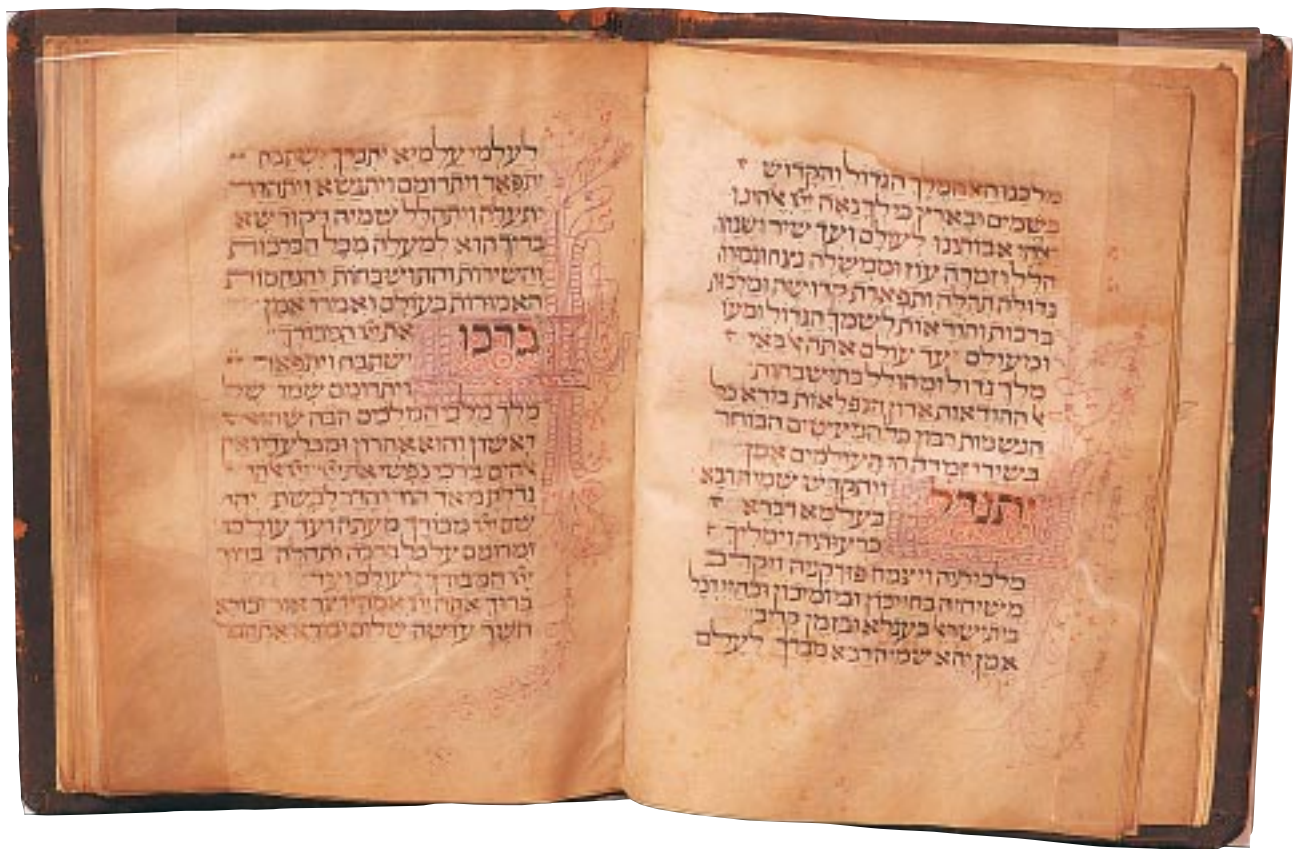 מלכנו האל המלך הגדול והקדוש
בשמים ובארץ כי לך נאה ייי אלהינו
ואלהי אבותינו לעולם ועד שיר ושבחה
הלל וזמרה עוז וממשלה נצח
גדולה תהלה ותפארת קדושה ומלכות
ברכות והודאות לשמך הגדול
ומעולם ועד עולם אתה
מלך גדול ומהולל בתושבחות
ההודאות אדון הנפלאות בורא כל
הנשמות רבון כל המעשים הבוחר
בשירי זמרה חי העולמים אמן
יתגדל
ויתקדש שמיה רבא
בעלמא דברא
כרעותיה וימליך
מלכותיה ויצמח פורקניה ויקריב
משיחיה בחייכון וביומיכון ובחיי דכל
בית ישראל בעגלא ובזמן קריב
אמן יהא שמיה רבא מברך לעלם
לעלמי עלמיא יתברך ישתבח
יתפאר ויתרומם ויתנשא ויתהדר
יתעלה ויתהלל שמיה דקודשא
בריך הוא למעלה מכל הברכות
והשירות והתושבחות והנחמות
האמורות בעולם ואמרו אמן
ברכו
את ייי המבורך
ישתבח ויתפאר
ויתרומם שמו של
מלך מלכי המלכים הבה שהוא
ראשון והוא אחרון ומבלעדיו אין
אלהים ברכי נפשי את ייי ייי אלהי
גדלת מאד הוד והדר לבשת יהי
שם ייי מבורך מעתה ועד עולם
ומרומם על כל ברכה ותהלה ברוך
ייי המבורך לעולם ועד
ברוך אתה ייי אמה יוצר אור ובורא
חשך עושה שלום ובורא את הכל